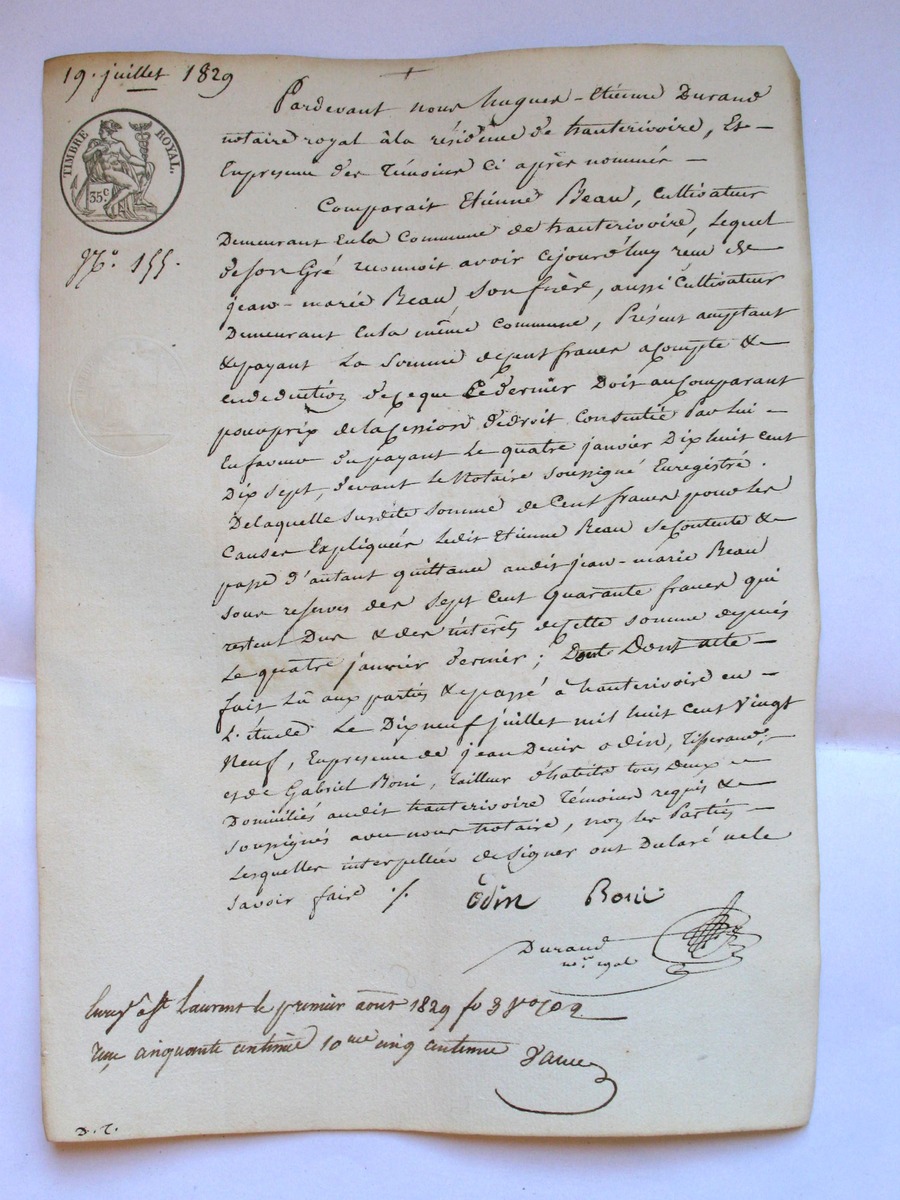 19. juillet 1829
TIMBRE ROYAL.
35 c
N.º 155.
Pardevant nous hugues-Etienne Durand
notaire royal à la résidence de hauterivoire, Et
Enpresence des Témoins Ci après nommés —
Comparait Etienne Beau, Cultivateur
Demeurant Enla Commune de hauterivoire, Lequel
deson Gré reconnoit avoir cejourd'huy reçu de
jean-marie Beau, son frère, aussi Cultivateur
Demeurant Enla même Commune, Présent acceptant
& payant La Somme decent francs acompte &
endeduction deceque Ledernier Doit auComparant
pour prix delaCession dedroit Consentie Par Lui —
En faveur dupayant Le quatre janvier Dix huit cent
Dix Sept, devant Le Notaire soussigné Enregistré.
Delaquelle Susdite Somme de Cent francs pour les
Causes Expliquées Ledit Etienne Beau Secontente &
passe d'autant quittance audit jean-marie Beau
sous reserves des Sept Cent Quarante francs qui
restent Dus & des intérêts decette Somme depuis
Le quatre janvier dernier; Dont Dont acte —
fait Lû aux parties & passé à hauterivoire en —
L'étude Le Dixneuf juillet mil huit Cent Vingt
Neuf, Enpresence de jean Denis odin, Tisserand,
et de Gabriel Boni, Tailleur d'habits tous Deux
Domiciliés audit hauterivoire Témoins requis &
Soussignés avec nous Notaire, non les Parties —
Lesquelles interpellées designer ont Declaré nele
Savoir faire ./.
Odin Boni
Durand
no.re royal
Enreg.é à S.t Laurent le premier aout 1829 fo 3 Vo
reçu cinquante centime 10.me cinq centime
D. T.